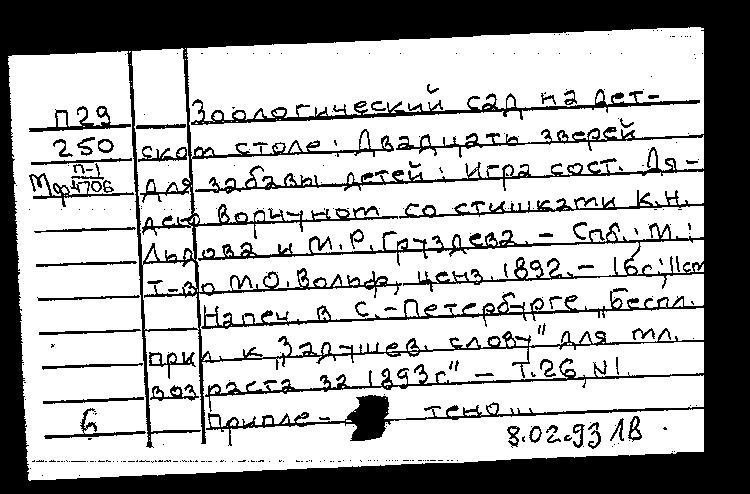 П29 Зоологический сад на дет-
250 ском столе: Двадцать зверей
Мф п-1/4706 для забавы детей: Игра сост. Дя-
дею Ворчуном со стишками К.Н.
Льдова и М.Р.Груздева. – Спб.; М.:
Т-во М.О.Вольф, ценз. 1892. – 16с.; 11см
Напеч. в С.-Петербурге. „Беспл.
прил. к „Задушев. слову" для мл.
возраста за 1893г." – Т.26, N1.
6 Припле- тено...
8.02.93 ЛВ